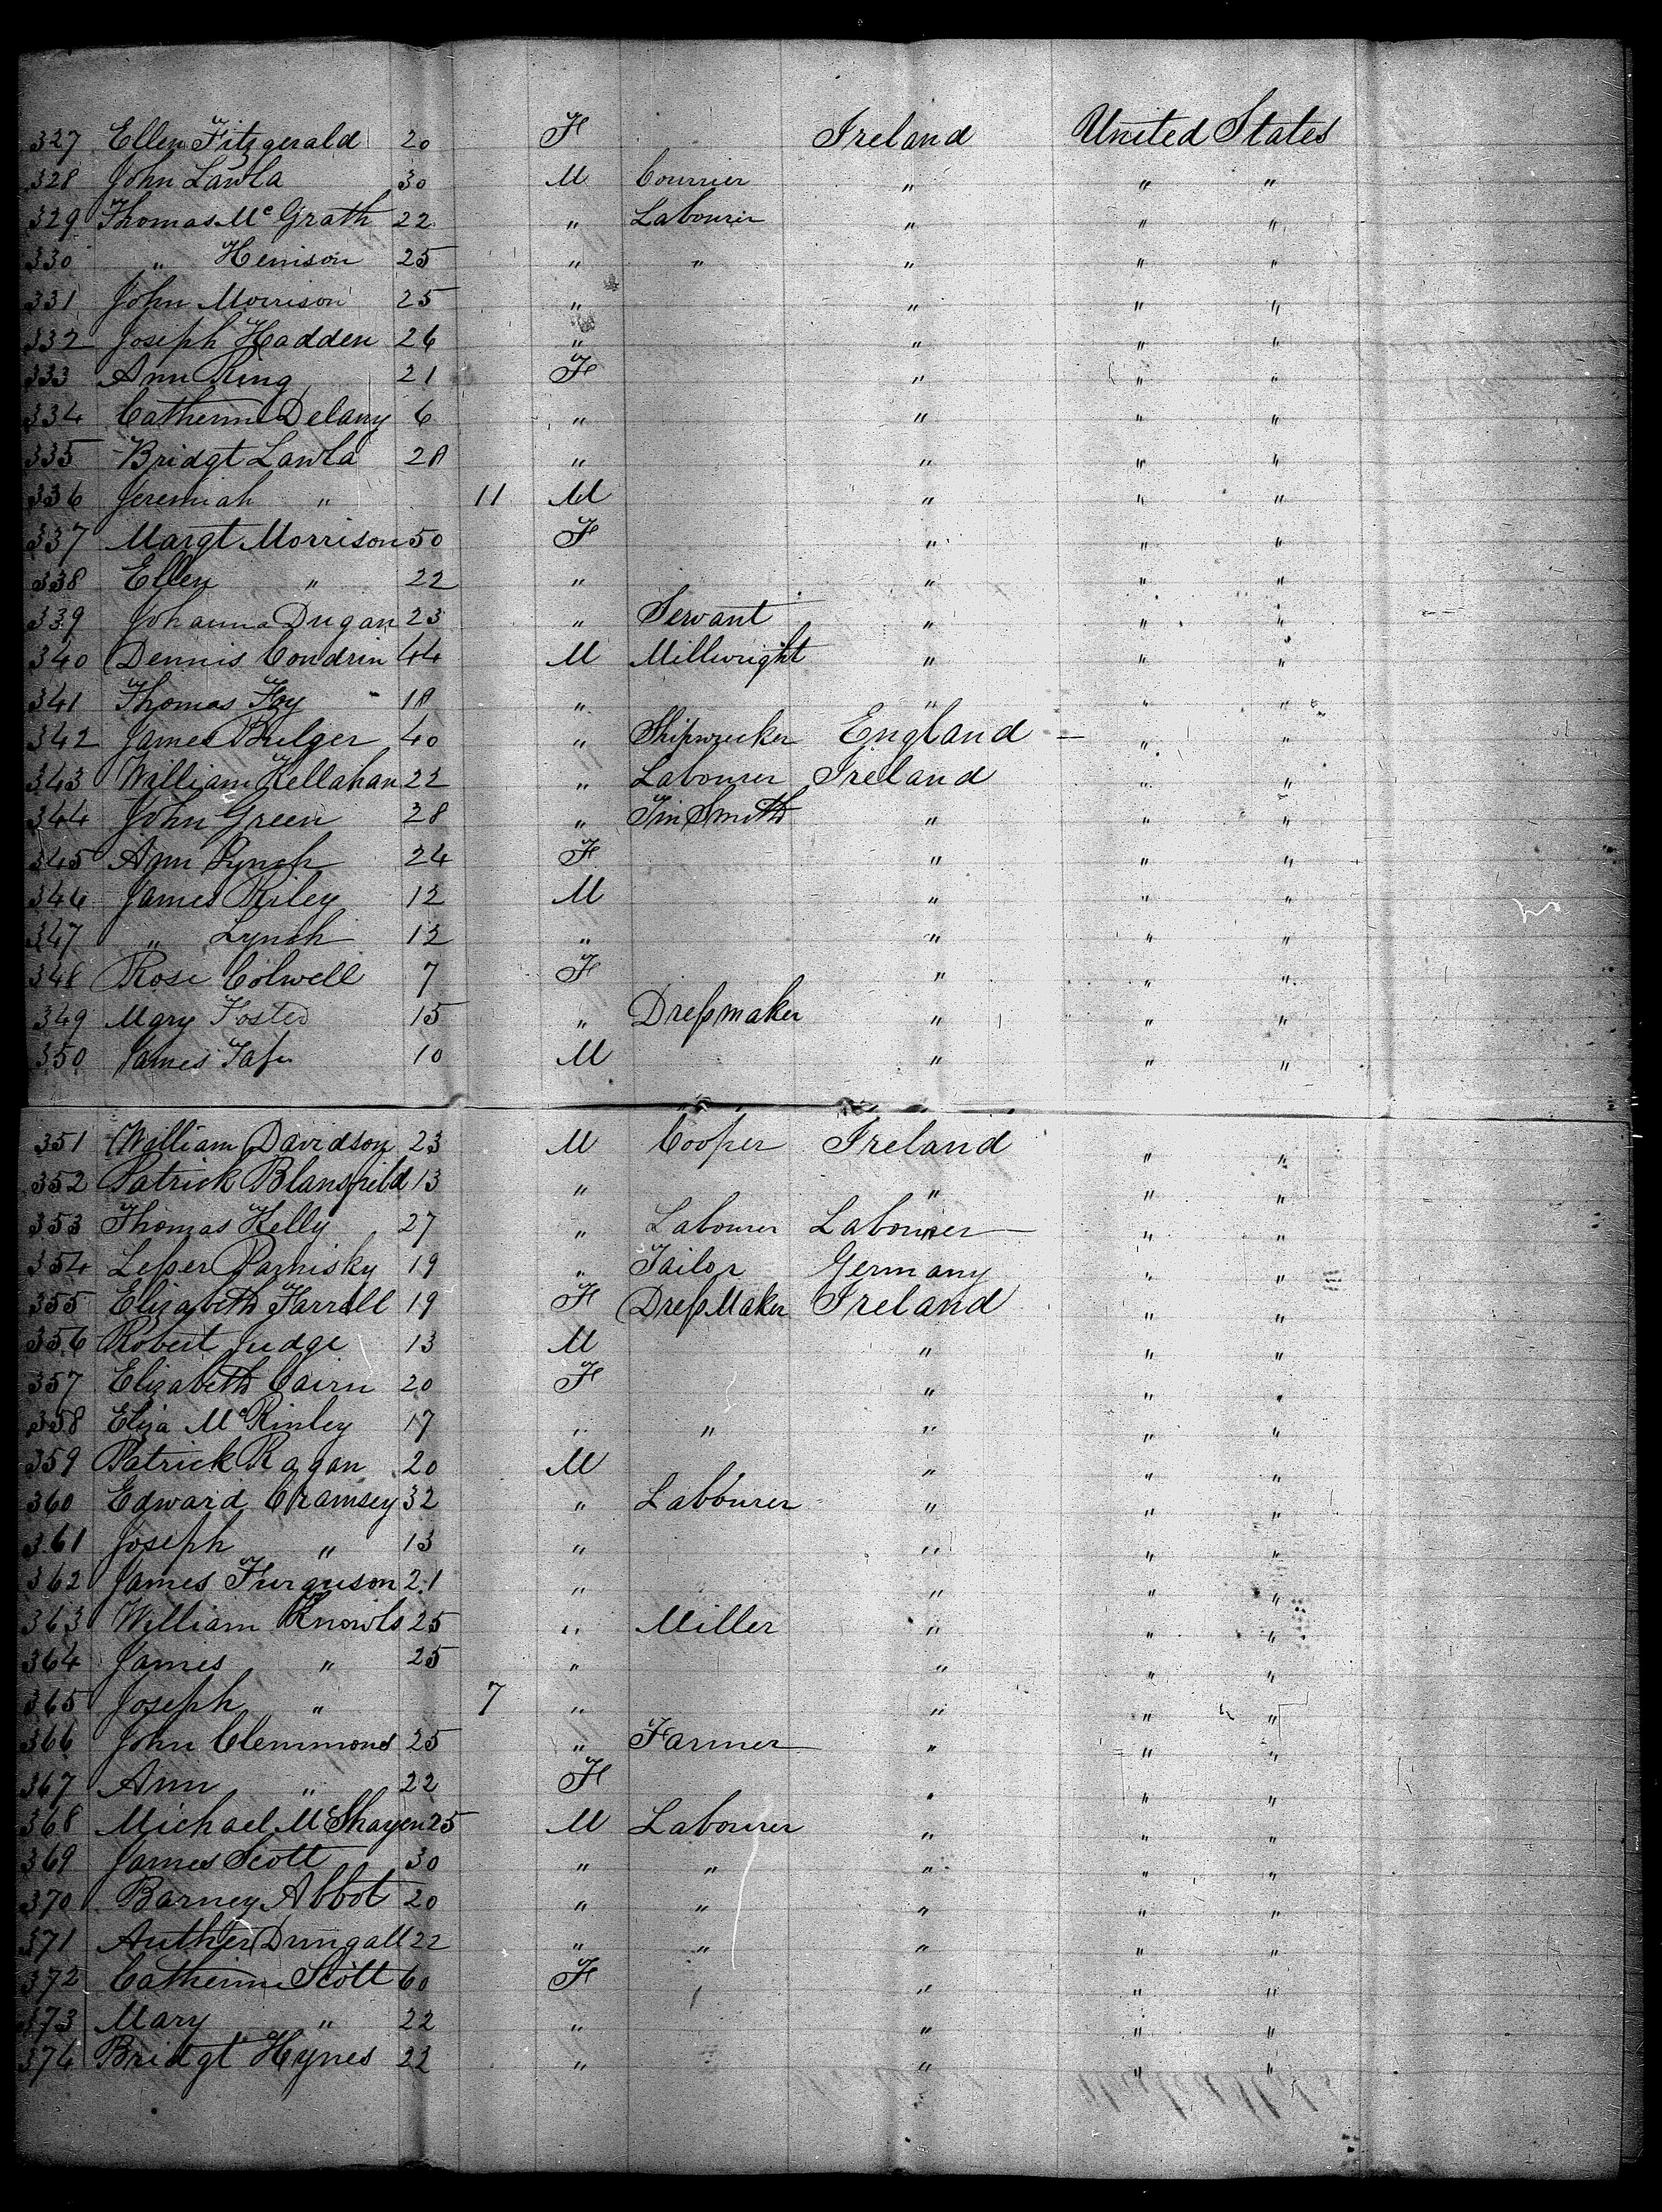 327 Ellen Fitzgerald 20 F Ireland United States
328 John Lawla 30 M Courrier " " "
329 Thomas McGrath 22 " Labourer " " "
330 " Henison 25 " " " " "
331 John Morrison 25 " " " "
332 Joseph Hadden 26 " " " "
333 Ann King 21 F " " "
334 Catherine Delany 6 " " " "
335 Bridgt Lawla 28 " " " "
336 Jeremiah " 11 M " " "
337 Margt Morrison 50 F " " "
338 Ellen " 22 " " " "
339 Johanna Dugan 23 " Servant " " "
340 Dennis Condrin 44 M Millwright " " "
341 Thomas Foy 18 " " " "
342 James Bulger 40 " England " "
343 William Kellahan 22 " Labourer Ireland " "
344 John Green 28 " Tin Smith " " "
345 Ann Lynch 24 F " " "
346 James Riley 12 M " " "
347 " Lynch 12 " " " "
348 Rose Colwell 7 F " " "
349 Mary Foster 15 " Dressmaker " " "
350 James 10 M " " "
351 William Davidson 23 M Cooper Ireland " "
352 Patrick Blansfield 13 " " " "
353 Thomas Kelly 27 " Labourer Labourer " "
354 Lesser Parnisky 19 " Tailor Germany " "
355 Elizabeth Farrell 19 F Dress Maker Ireland " "
356 Robert Judge 13 M " " "
357 Elizabeth Cairn 20 F " " "
358 Eliza McKinley 17 " " " " "
359 Patrick Ragan 20 M " " "
360 Edward Cramsey 32 " Labourer " " "
361 Joseph " 13 " " " "
362 James Furguson 21 " " " "
363 William Knowls 25 " Miller " " "
364 James " 25 " " " "
365 Joseph " 7 " " " "
366 John Clemmons 25 " Farmer " " "
367 Ann " 22 F " " "
368 Michael 25 M Labourer " " "
369 James Scott 30 " " " " "
370 Barney Abbot 20 " " " " "
371 Auther Dungall 22 " " " " "
372 Catherine Scott 60 F " " "
373 Mary " 22 " " " "
374 Bridgt Hynes 22 " " " "